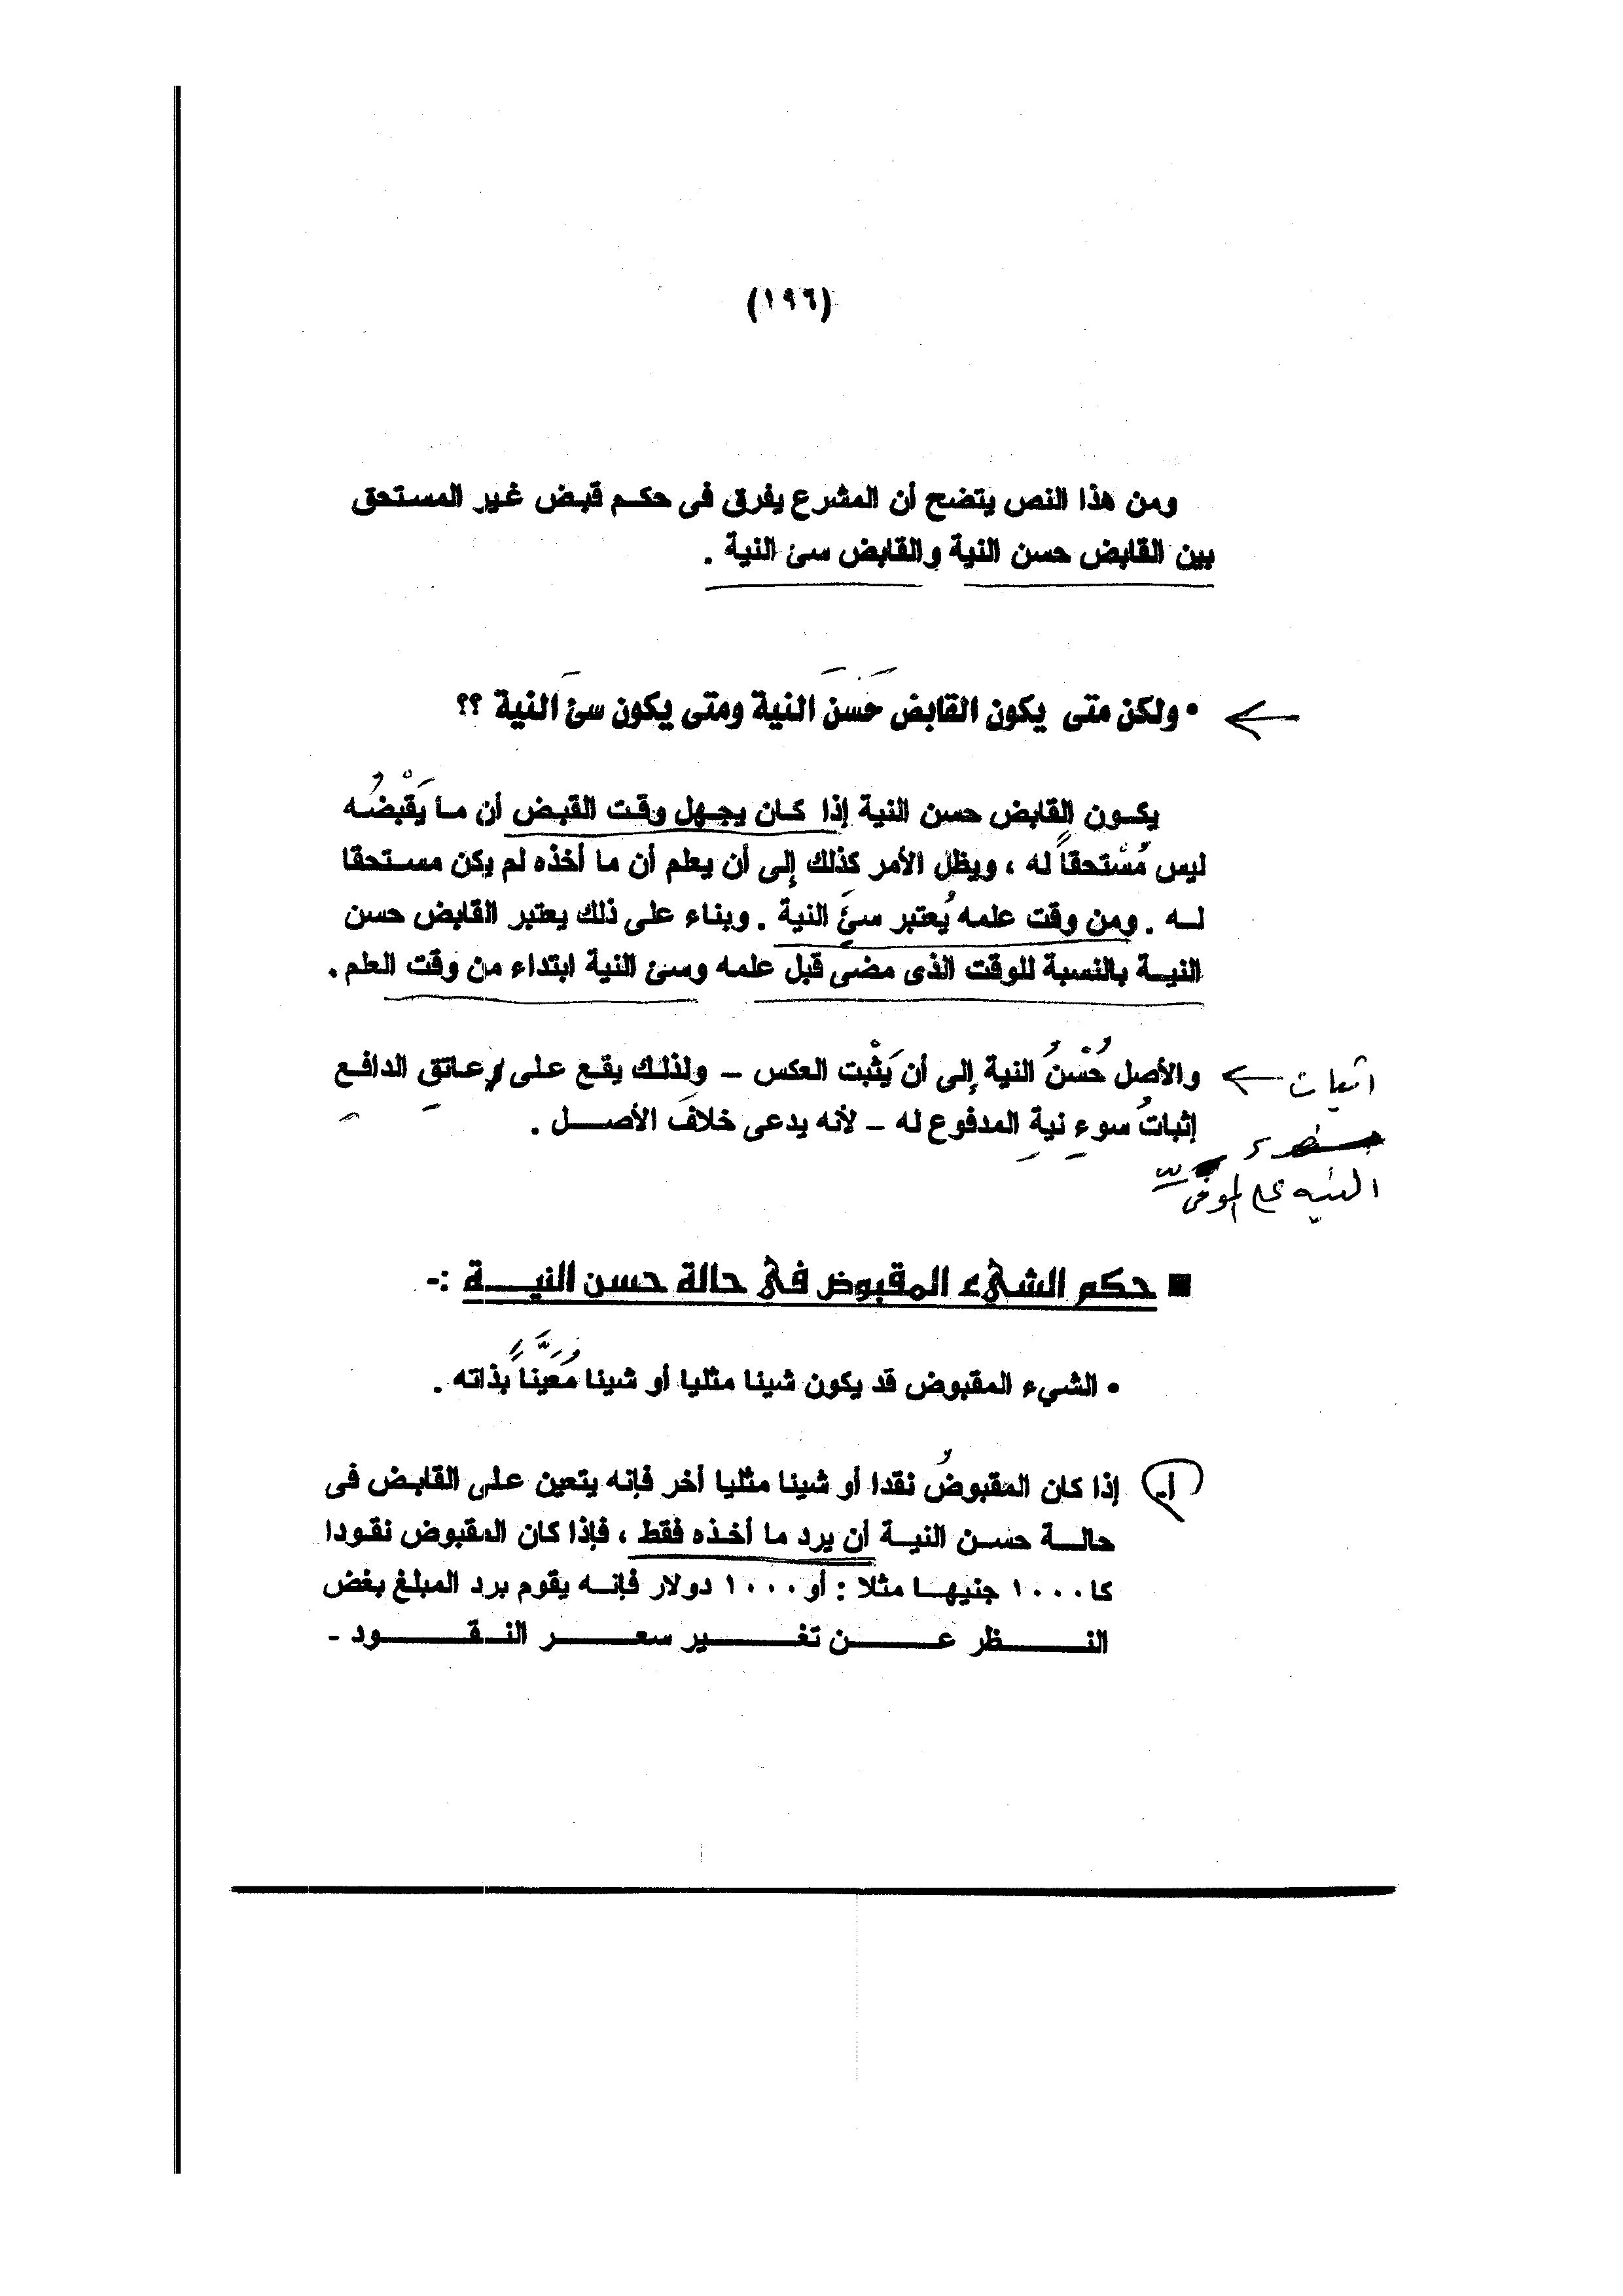 (١٩٦)
ومن هذا النص يتضح أن المشرع يفرق فى حكم قبض غير المستحق
بين القابض حسن النية والقابض سئ النية .
• ولكن متى يكون القابض حَسَنَ النية ومتى يكون سئَ النية ؟؟
يكون القابض حسن النية إذا كان يجهل وقت القبض أن ما يَقْبضُه
ليس مُسْتحقاً له ، ويظل الأمر كذلك إلى أن يعلم أن ما أخذه لم يكن مستحقا
له . ومن وقت علمه يُعتبر سئَ النية . وبناء على ذلك يعتبر القابض حسن
النية بالنسبة للوقت الذى مضى قبل علمه وسئ النية ابتداء من وقت العلم .
والأصل حُسْنُ النية إلى أن يَثْبت العكس – ولذلك يقع على عاتقِ الدافعِ
إثباتُ سوءِ نيةِ المدفوع له – لأنه يدعى خلافَ الأصل .
اثبات
النيه على الموفى
■ حكم الشيء المقبوض فى حالة حسن النية :-
• الشيء المقبوض قد يكون شيئا مثليا أو شيئا مُعَيَّناً بذاته .
أ- إذا كان المقبوضُ نقدا أو شيئا مثليا أخر فإنه يتعين على القابض فى
حالة حسن النية أن يرد ما أخذه فقط ، فإذا كان المقبوض نقودا
كا ١٠٠٠ جنيها مثلا : أو ١٠٠٠ دولار فإنه يقوم برد المبلغ بغض
النظر عن تغير سعر النقود -